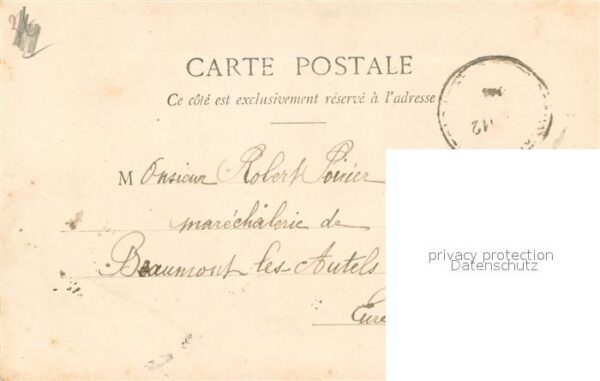 CARTE POSTALE
Ce côté est exclusivement réservé à l'adresse
Monsieur Robert Poirier
maréchalerie de
Beaumont les-Autels
Eure
privacy protection
Datenschutz